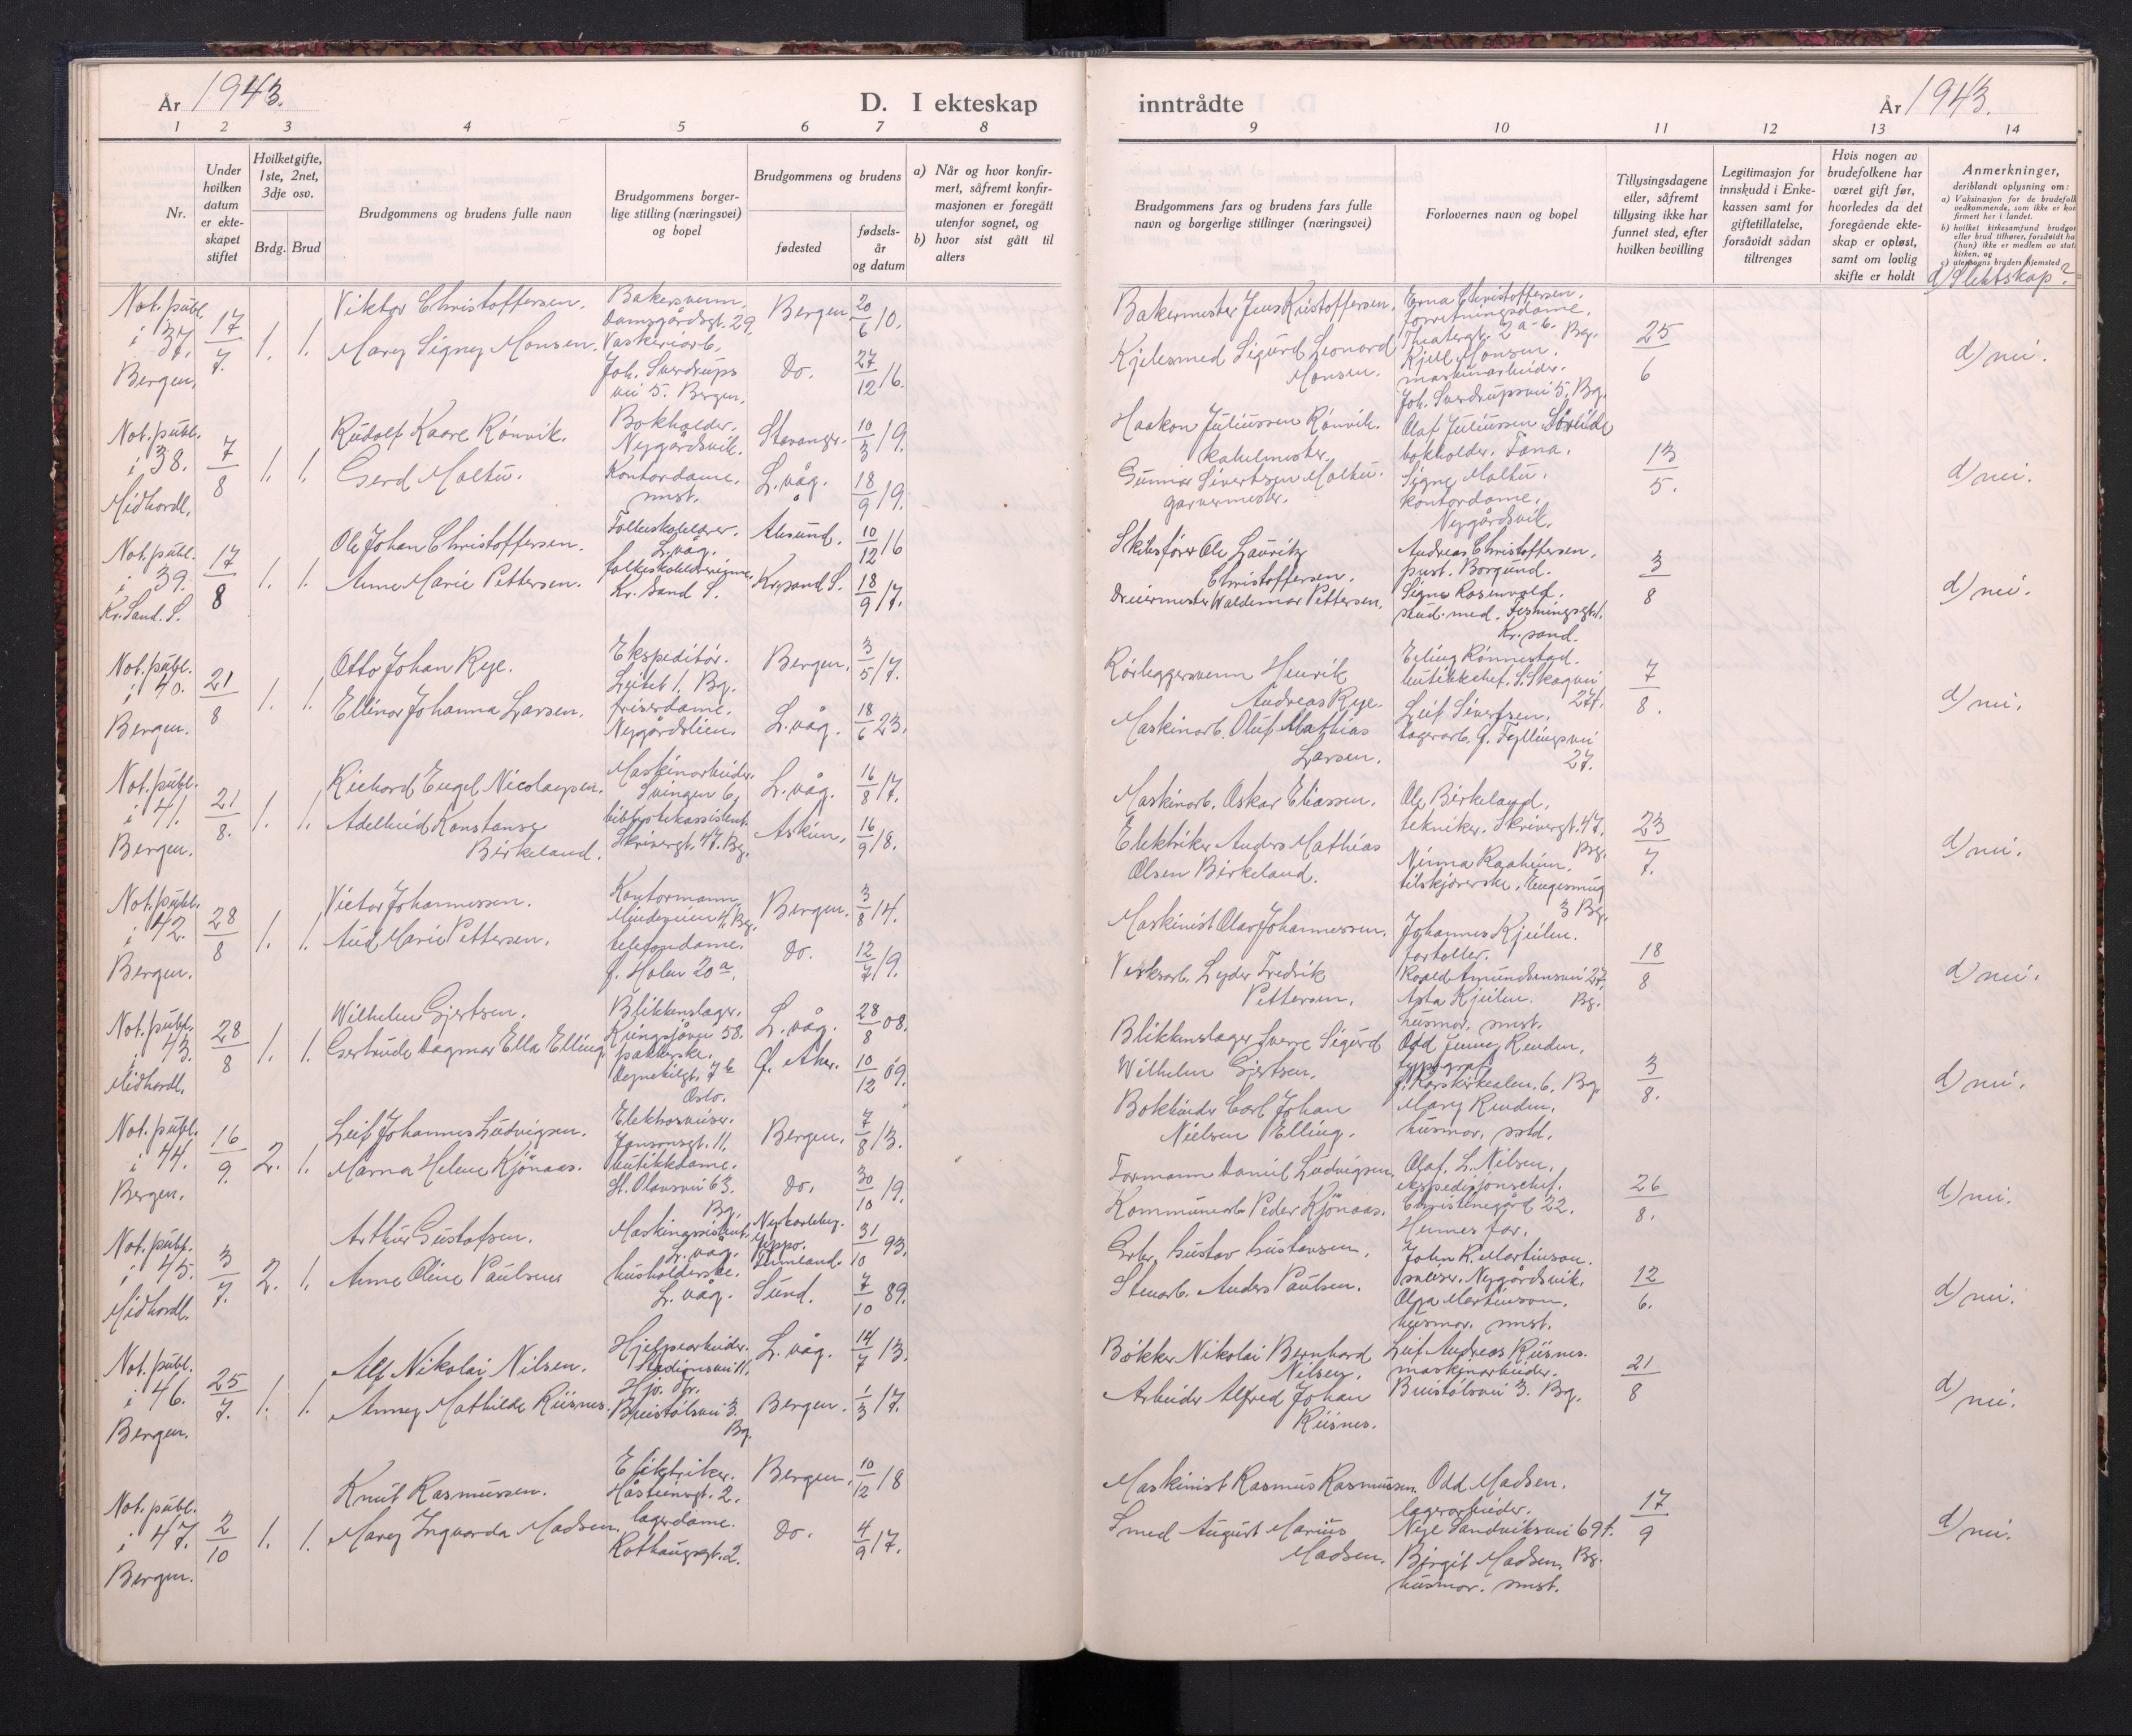 År 1943.
D. I ekteskap
inntrådte
År 1943.
1 2 3 4 5 6 7 8 9 10 11 12 13 14
Nr.
Under hvilken datum er ekte-skapet stiftet
Hvilket gifte, 1ste, 2net, 3dje osv.
Brdg. Brud
Brudgommens og brudens fulle navn
Brudgommens borger-lige stilling (næringsvei) og bopel
Brudgommens og brudens
fødested
fødsels-år og datum
a) Når og hvor konfir-mert, såfremt konfir-masjonen er foregått utenfor sognet, og
b) hvor sist gått til alters
Brudgommens fars og brudens fars fulle navn og borgerlige stillinger (næringsvei)
Forlovernes navn og bopel
Tillysingsdagene eller, såfremt tillysing ikke har funnet sted, efter hvilken bevilling
Legitimasjon for innskudd i Enke-kassen samt for giftetillatelse, forsåvidt sådan tiltrenges
Hvis nogen av brudefolkene har været gift før, hvorledes da det foregående ekte-skap er opløst, samt om lovlig skifte er holdt
Anmerkninger,
deriblandt oplysning om:
d) Slektskap?
Not. publ.
i 37.
Bergen.
17/7.
1. 1.
Viktor Christoffersen.
Mary Signy Monsen.
Bakersvenn.
Damsgårdsgt. 29.
Vaskeriarb.
Joh. Sverdrups
vei 5. Bergen.
Bergen
Do.
20/6 10.
27/12 16.
Bakermester Jens Kristoffersen.
Kjelesmed Sigurd Leonard
Monsen.
Erna Christoffersen.
forretningsdame.
Theatergt. 2 a-b. Bg.
Kjell Monsen.
maskinarbeider.
Joh. Sverdrupsvei 5. Bg.
25/6
d) nei.
Not. publ.
i 38.
Midhordl.
7/8
1. 1.
Rudolf Kaare Rönvik.
Gerd Maltu.
Bokholder.
Nygårdsvik.
Kontordame.
smst.
Stavanger.
L. våg.
10/3 19.
18/9 19.
Haakon Juliussen Rönvik.
kakelmester.
Gunnar Sivertsen Maltu.
garvermester.
Olaf Juliussen
bokholder. Fana.
Signe Maltu.
kontordame.
Nygårdsvik.
13/5.
d) nei.
Not. publ.
i 39.
Kr. Sand. S.
17/8
1. 1.
Ole Johan Christoffersen.
Anne Marie Pettersen.
Folkeskolelærer.
L. våg.
folkeskolelærerinne.
Kr. Sand S.
Ålesund.
Kr. sand S.
10/12 16
18/9 17.
Skibsfører Ole Lauritz
Christoffersen.
Dreiermester Waldemar Pettersen.
Andreas Christoffersen.
pust. Borgund.
Signe Rosenvold.
stud. med. Festningsgt.
Kr. sand.
3/8
d) nei.
Not. publ.
i 40.
Bergen.
21/8
1. 1.
Otto Johan Rye.
Ellinor Johanna Larsen.
Ekspeditör.
Leitet 1. Bg.
friserdame.
Nygårdslien.
Bergen.
L. våg.
3/5 17.
18/6 23.
Rörleggersvenn Henrik
Andreas Rye.
Maskinarb. Oluf Mathias
Larsen.
Erling Rönnestad.
butikkchef. S. Skogvei
27f.
Leif Sivertsen.
lagerarb. f. Fyllingsvei
27.
7/8.
d) nei.
Not. publ.
i 41.
Bergen.
21/8.
1. 1.
Richard Engel Nicolaysen.
Adelheid Konstanse
Birkeland.
Maskinarbeider.
Svingen 6.
bibliotekassistent.
Skivergt. 47. Bg.
L. våg.
Askim.
16/8 17.
16/9 18.
Maskinarb. Oskar Eliassen.
Elektriker Anders Mathias
Olsen Birkeland.
Ole Birkeland.
tekniker. Skivergt. 47.
Bg.
tilskjærerske. Engesmug
3 Bg.
23/7.
d) nei.
Not. publ.
i 42.
Bergen.
28/8
1. 1.
Victor Johannessen.
Aud Marie Pettersen.
Kontormann
Mindeveien 4. Bg.
telefondame.
f. Holen 20 a.
Bergen.
Do.
3/8 14.
12/7 19.
Maskinist Olav Johannessen.
Verksarb. Lyder Fredrik
Pettersen.
Johannes Kjeilen.
fortoller.
Roald Amundsensvei 27.
Bg.
Asta Kjeilen.
husmor. smst.
18/8
d) nei.
Not. publ.
i 43.
Midhordl.
28/8
1. 1.
Wilhelm Gjertsen.
Gertrude Dagmar Ella Elling
Blikkenslager.
Kringsjåvei 58.
pakkerske.
Oslo.
L. våg.
f. Aker.
28/8 08.
10/12 09.
Blikkenslager Sverre Sigurd
Wilhelm Gjertsen.
Bokbinder Carl Johan
Nielsen Elling.
Odd Jenney Renden.
typograf.
f. Korskirkealm. 6. Bg.
Mary Renden.
husmor. sstd.
3/8.
d) nei.
Not. publ.
i 44.
Bergen.
16/9.
2. 1.
Leif Johannes Ludvigsen.
Marna Helene Kjönaas.
Elektrosveiser.
Jansonsgt. 11.
butikkdame.
St. Olavsvei 63.
Bg.
Bergen.
Do.
7/8 13.
30/10 19.
Formann Daniel Ludvigsen.
Kommunearb. Peder Kjönaas.
Olaf. L. Nilsen.
ekspedisjonschef.
Christinegård 22.
Hennes far.
26/8.
d) nei.
Not. publ.
i 45.
Midhordl.
3/7.
2. 1.
Arthur Gustafsen.
Anne Oline Paulsen
Maskinassistent.
L. våg.
husholderske.
L. våg.
Nykarleby.
Jeppo.
Finnland.
Sund.
31/10 93.
7/10 89.
Grbr. Gustav Gustavsen.
Stenarb. Anders Paulsen.
John R. Martinson.
Nygårdsvik.
Olga Martinson.
husmor. smst.
12/6.
d) nei.
Not. publ.
i 46.
Bergen.
25/7.
1. 1.
Alf Nikolai Nilsen.
Anny Mathilde Riisnes.
Hjelpearbeider.
Stadionsvei 11.
Hjv. dtr.
Breistölsvei 3.
Bg.
L. våg.
Bergen.
14/7 13.
1/3 17.
Bökker Nikolai Bernhard
Nilsen.
Arbeider Alfred Johan
Riisnes.
Leif Andreas Riisnes.
maskinarbeider.
Breistölsvei 3. Bg.
21/8
d) nei.
Not. publ.
i 47.
Bergen.
2/10
1. 1.
Knut Rasmussen.
Mary Ingvarda Madsen.
Elektriker.
Håsteinsgt. 2.
lagerdame.
Rothaugsgt. 2.
Bergen.
Do.
10/12 18
4/9 17.
Maskinist Rasmus Rasmussen.
Smed August Marius
Madsen.
Odd Madsen.
lagerarbeider.
Nye Sandviksvei 69 f.
Bg.
Birgit Madsen.
husmor. smst.
17/9
d) nei.